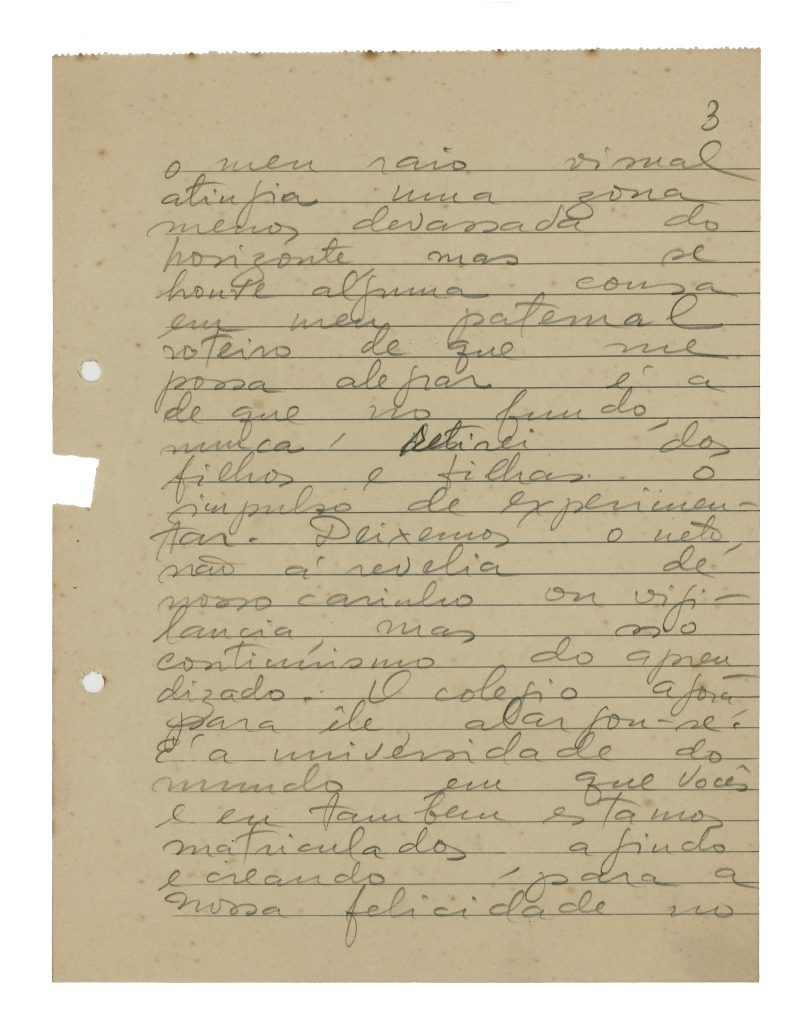 3
o meu raio visual
atingia uma zona
menos devassada do
horizonte, mas se
houve alguma cousa
em meu paternal
roteiro de que me
possa alegrar é a
de que no fundo,
nunca retirei dos
filhos e filhas o
impulso de experimen-
tar. Deixemos o neto,
não á revelia de
nosso carinho ou vigi-
lancia, mas no
continuismo do apren
dizado. O colegio agora
para êle, alargou-se:
É a universidade do
mundo em que vocês
e eu tambem estamos
matriculados agindo
e creando para a
nossa felicidade no